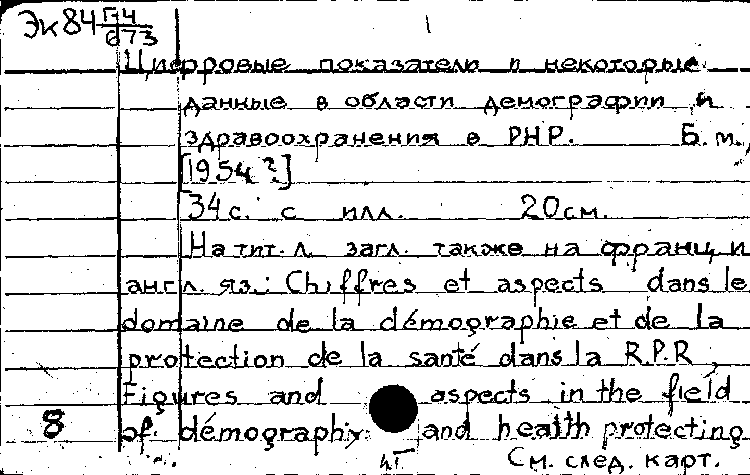 Эк84 Г-4
673
1
Цифровые показатели и некоторые
данные в области демографии и
здравоохранения в РНР. Б.м.,
[1954?]
34 с. с илл. 20 см.
На тит. л. загл. также на франц. и
англ. яз.: Chiffres et aspects dans le
domaine de la démographie et de la
protection de la santé dans la R.P.R.,
Figures and aspects in the field
8 of démography and health protecting
См. след. карт.